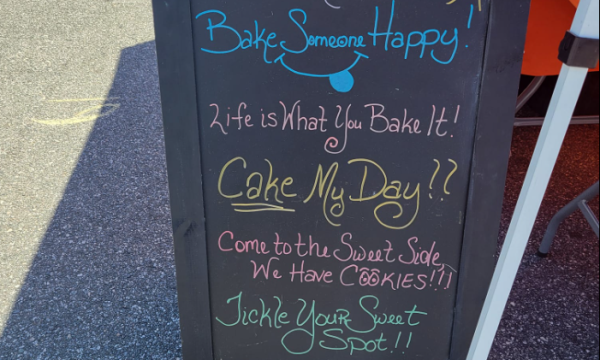 Bake Someone Happy!
Life is What You Bake It!
Cake My Day??
Come to the Sweet Side
We Have COOKIES!!!
Tickle Your Sweet
Spot!!